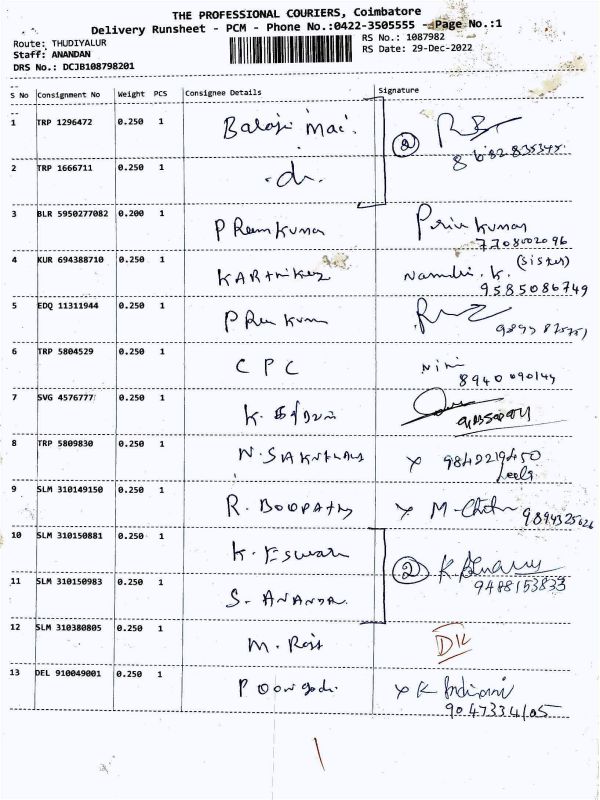 THE PROFESSIONAL COURIERS, Coimbatore
Delivery Runsheet - PCM - Phone No.:0422-3505555 - Page No.:1
Route: THUDIYALUR
RS No.: 1087982
Staff: ANANDAN
RS Date: 29-Dec-2022
DRS No.: DCJB108798201
S No Consignment No Weight PCS Consignee Details Signature
1 TRP 1296472 0.250 1 Balaji Mai. 2
2 TRP 1666711 0.250 1 -do-
3 BLR 5950277082 0.200 1 P Rem Kumar Priu Kumar
7708002096
4 KUR 694388710 0.250 1 KARthikey Nandhi. K. (Sister)
9585086749
5 EDQ 11311944 0.250 1 P Rem Kumar
6 TRP 5804529 0.250 1 C P C Nini
8940090144
7 SVG 4576777 0.250 1 K.
8 TRP 5809830 0.250 1 N. X 9842219450
Leela
9 SLM 310149150 0.250 1 R. BOOPATHY X M-
9894325626
10 SLM 310150881 0.250 1 K. Eswari 2 K
9488153833
11 SLM 310150983 0.250 1 S. ANANDA.
12 SLM 310380805 0.250 1 M. Raji DK
13 DEL 910049001 0.250 1 Poongodi. X K Indirani
9047334105